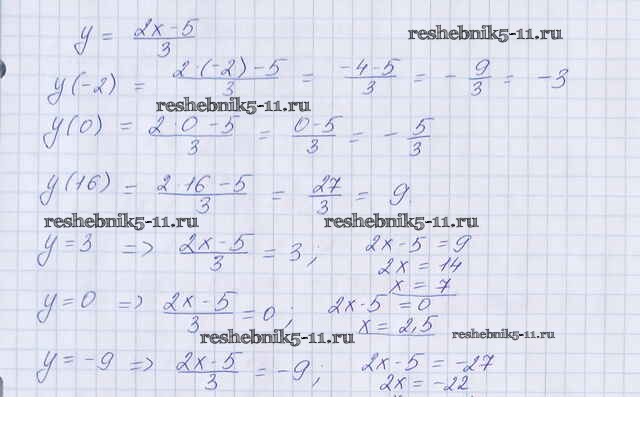 y = (2x - 5)/3
reshebnik5-11.ru
y(-2) = (2·(-2) - 5)/3 = (-4-5)/3 = - 9/3 = -3
reshebnik5-11.ru
y(0) = (2·0 - 5)/3 = (0-5)/3 = - 5/3
y(16) = (2·16 - 5)/3 = 27/3 = 9.
reshebnik5-11.ru reshebnik5-11.ru
y = 3 => (2x - 5)/3 = 3; 2x - 5 = 9
2x = 14
x = 7
y = 0 => (2x - 5)/3 = 0; 2x - 5 = 0
x = 2,5
reshebnik5-11.ru reshebnik5-11.ru
y = -9 => (2x - 5)/3 = -9; 2x - 5 = -27
2x = -22